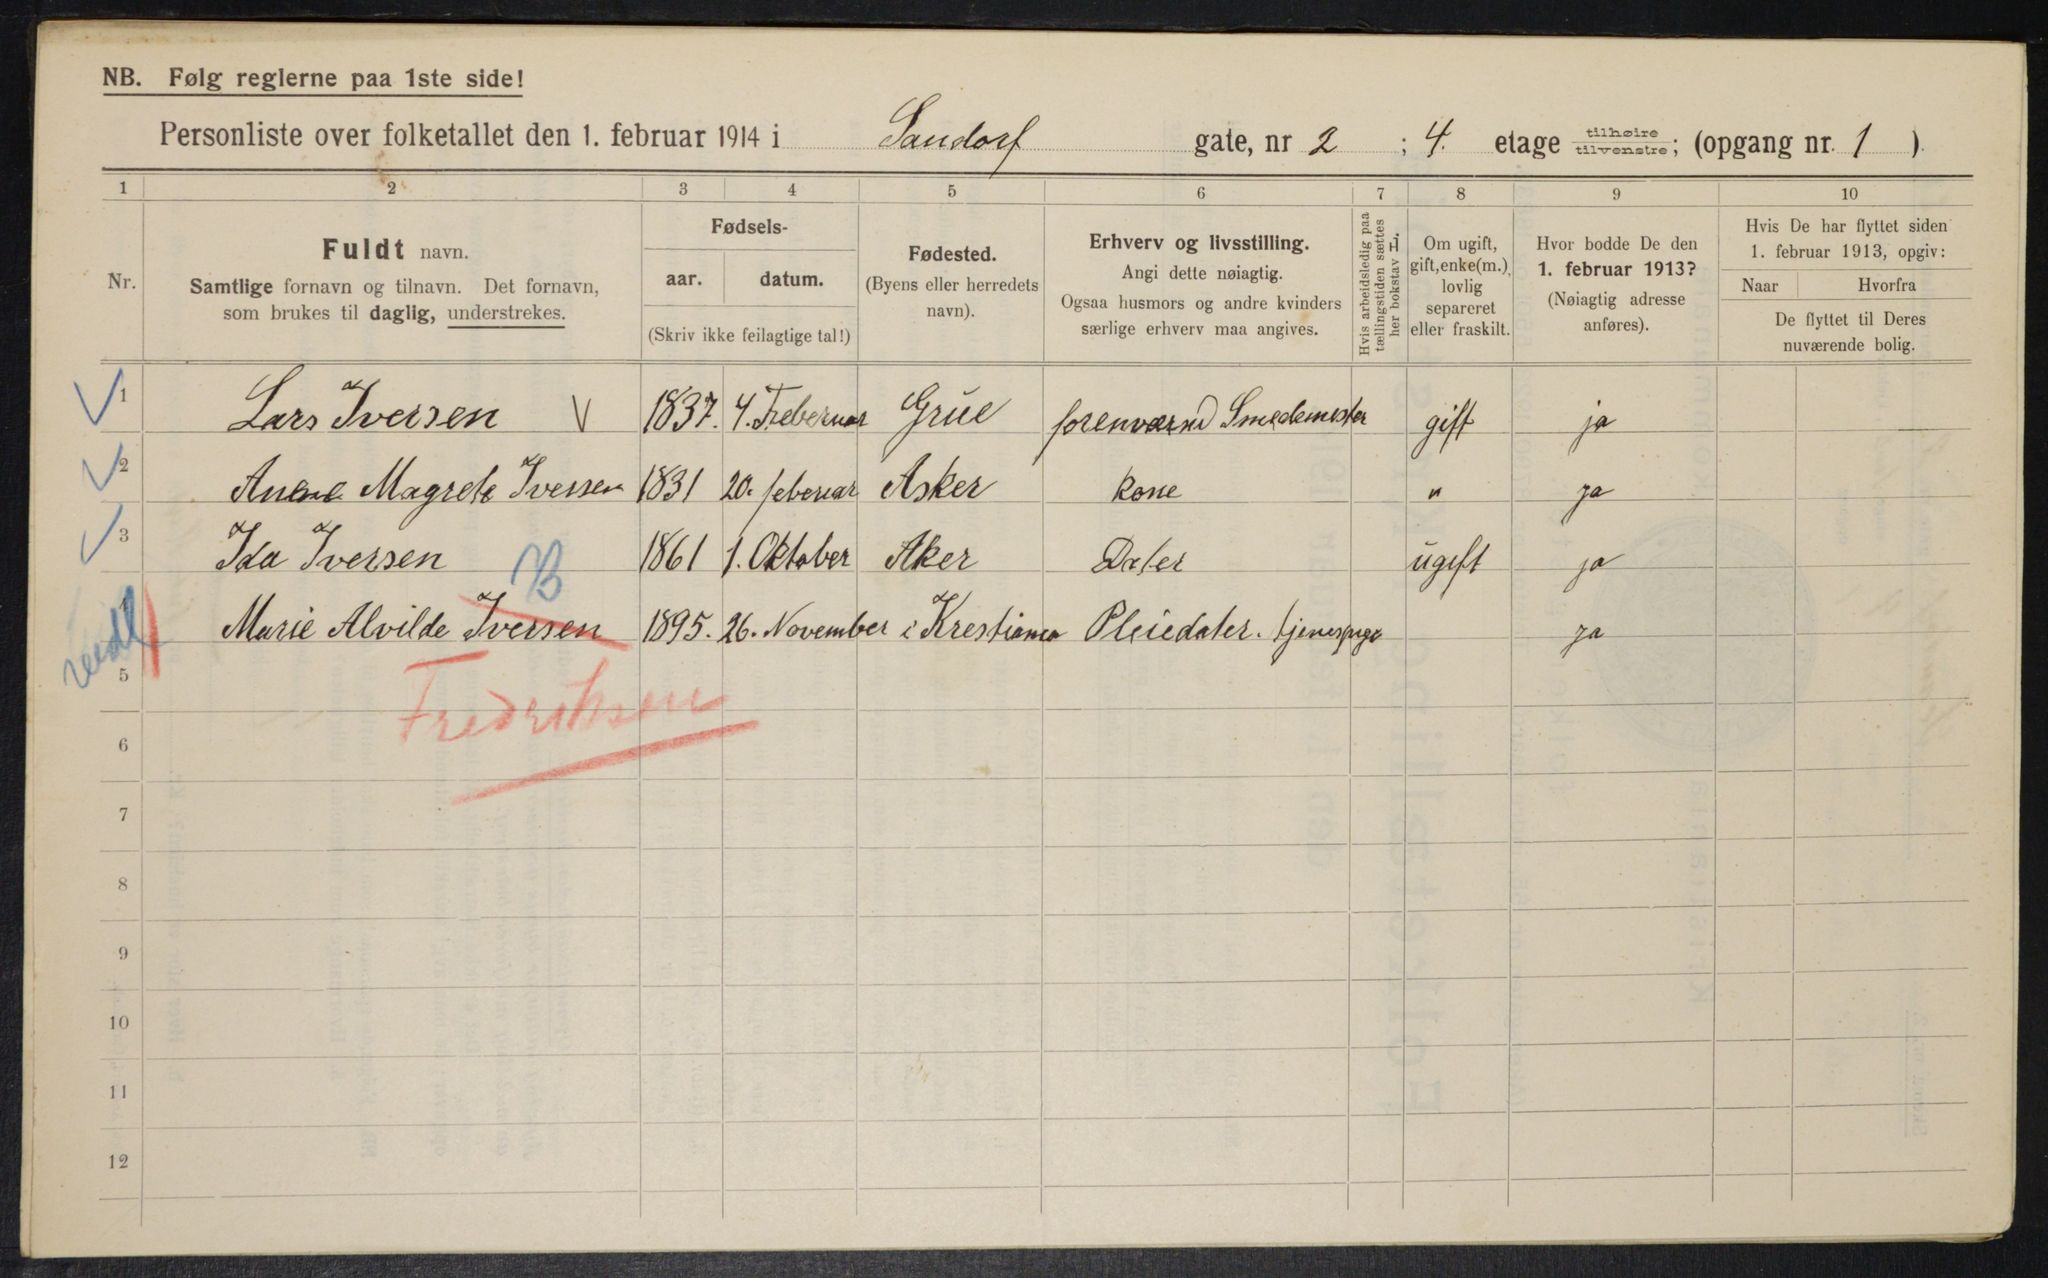 NB. Følg reglerne paa 1ste side!
Personliste over folketallet den 1. februar 1914 i Sandorf gate, nr 2 ; 4. etage tilhøire tilvenstre; (opgang nr. 1 ).
1 2 3 4 5 6 7 8 9 10
Nr.
Fuldt navn.
Samtlige fornavn og tilnavn. Det fornavn,
som brukes til daglig, understrekes.
Fødsels-
aar. datum.
(Skriv ikke feilagtige tal!)
Fødested.
(Byens eller herredets
navn).
Erhverv og livsstilling.
Angi dette nøiagtig.
Ogsaa husmors og andre kvinders
særlige erhverv maa angives.
Hvis arbeidsledig paa
tællingstiden sættes
her bokstav L.
Om ugift,
gift, enke(m.),
lovlig
separeret
eller fraskilt.
Hvor bodde De den
1. februar 1913?
(Nøiagtig adresse
anføres).
Hvis De har flyttet siden
1. februar 1913, opgiv:
Naar Hvorfra
De flyttet til Deres
nuværende bolig.
1 Lars Iversen 1837. 4. Frebernar Grue forenværnd Smedemester gift ja
2 Anene Magrete Iversen 1831 20. febervar Asker kone " ja
3 Ida Iversen 1861 1. Oktober Aker Dater ugift ja
B
4 Marie Alvilde Iversen 1895. 26. November i Krestiania Pleiedater. tjenespige ja
5
Fredriksen
6
7
8
9
10
11
12